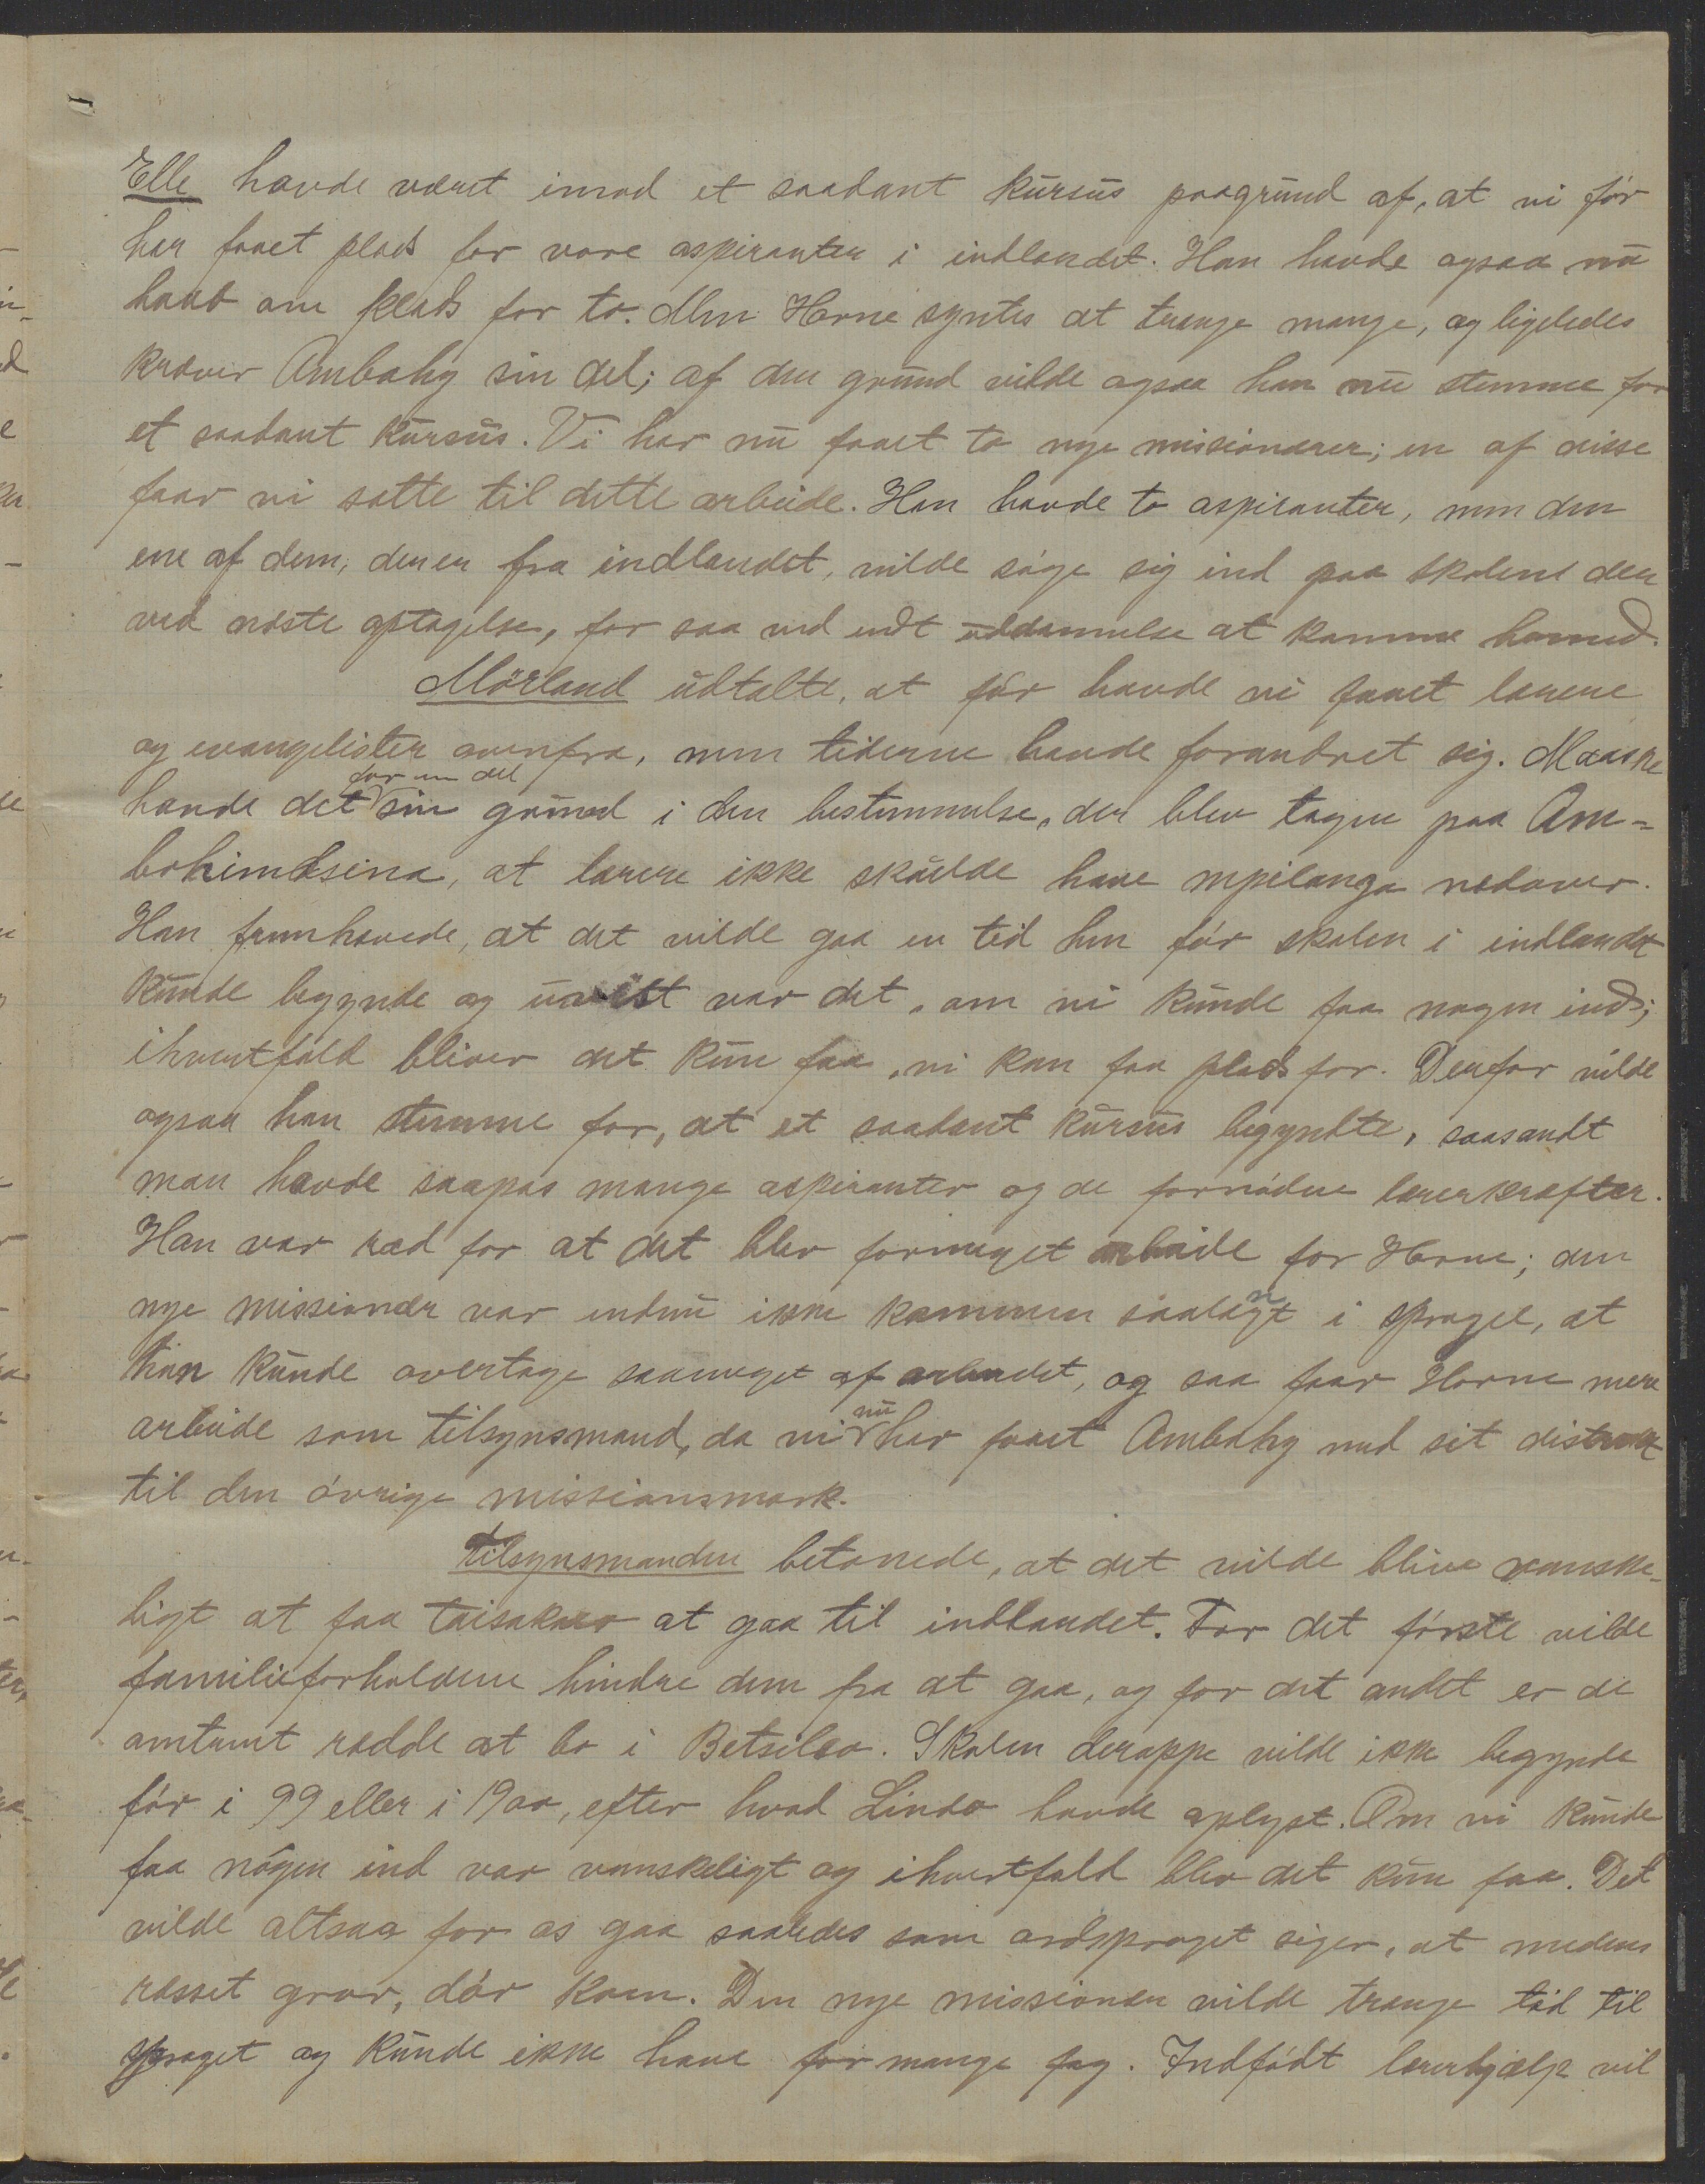 Elle havde været imod et saadant kursus paagrund af, at vi før
har faaet plads for vore aspiranter i indlandet. Han havde ogsaa nu
haab om plads for to. Men Horne syntes at trenge mange, og ligeledes
kræver Ambohy sin del; af den grund vilde ogsaa han nu stemme for
et saadant kursus. Vi har nu faaet to nye missionærer; en af disse
faar vi sætte til dette arbeide. Han havde to aspiranter, men den
ene af dem, der er fra indlandet, vilde søge sig ind paa skolene der
ved næste optagelse, for saa ved endt uddannelse at komme herned.
Mörland udtalte, at før havde vi faaet lærere
og evangelister ovenfra, men tiderne havde forandret sig. Maaske
havde det for en del sin grund i den bestemmelse, der blev tagen paa Am-
bohimdsina, at lærere ikke skulde have mpilanga nedover.
Han fremhævede, at det vilde gaa en tid hen før skolen i indlandet
kunde begynde og uvist var det, om vi kunde faa nogen ind;
ihvertfald bliver det kun faa, vi kan faa plads for. Derfor vilde
ogsaa han stemme for, at et saadant kursus begyndte, saasandt
man havde saapas mange aspiranter og de fornødne lærerkræfter.
Han var ræd for at det blev formeget arbeide for Horne; den
nye missionær var endnu ikke kommen saalangt i sproget, at
han kunde overtage saameget af arbeidet, og saa faar Horne mere
arbeide som tilsynsmand, da vi nu har faaet Ambohy med sit distrikt
til den øvrige missionsmark.
Tilsynsmanden betonede, at det vilde blive vanske-
ligt at faa taisakaer at gaa til indlandet. For det første vilde
familieforholdene hindre dem fra at gaa, og for det andet er de
omtrent rædde at bo i Betsileo. Skolen deroppe vilde ikke begynde
før i 99 eller i 1900, efter hvad Lindo havde oplyst. Om vi kunde
faa nogen ind var vanskeligt og ihvertfald blev det kun faa. Det
vilde altsaa for os gaa saaledes som ordsproget siger, at medens
græsset gror, dør koen. Den nye missionær vilde trenge tid til
sproget og kunde ikke have for mange fag. Indfødt lærerhjælp vil